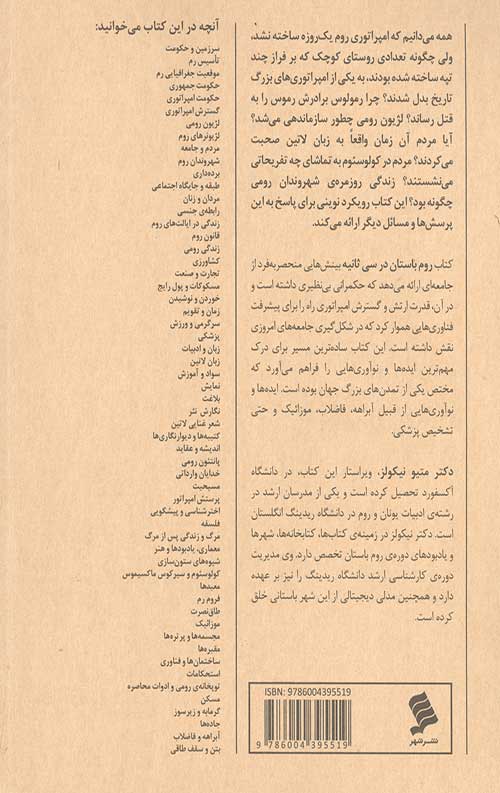 همه می‌دانیم که امپراتوری روم یک‌روزه ساخته نشد،
ولی چگونه تعدادی روستای کوچک که بر فراز چند
تپه ساخته شده بودند، به یکی از امپراتوری‌های بزرگ
تاریخ بدل شدند؟ چرا رمولوس برادرش رموس را به
قتل رساند؟ لژیون رومی چطور سازماندهی می‌شد؟
آیا مردم آن زمان واقعاً به زبان لاتین صحبت
می‌کردند؟ مردم در کولوسئوم به تماشای چه تفریحاتی
می‌نشستند؟ زندگی روزمره‌ی شهروندان رومی
چگونه بود؟ این کتاب رویکرد نوینی برای پاسخ به این
پرسش‌ها و مسائل دیگر ارائه می‌کند.
کتاب روم باستان در سی ثانیه بینش‌هایی منحصربه‌فرد از
جامعه‌ای ارائه می‌دهد که حکمرانی بی‌نظیری داشته است و
در آن، قدرت ارتش و گسترش امپراتوری راه را برای پیشرفت
فناوری‌هایی هموار کرد که در شکل‌گیری جامعه‌های امروزی
نقش داشته است. این کتاب ساده‌ترین مسیر برای درک
مهم‌ترین ایده‌ها و نوآوری‌هایی را فراهم می‌آورد که
مختص یکی از تمدن‌های بزرگ جهان بوده است. ایده‌ها و
نوآوری‌هایی از قبیل آبراهه، فاضلاب، موزائیک و حتی
تشخیص پزشکی.
دکتر متیو نیکولز، ویراستار این کتاب، در دانشگاه
آکسفورد تحصیل کرده است و یکی از مدرسان ارشد در
رشته‌ی ادبیات یونان و روم در دانشگاه ریدینگ انگلستان
است. دکتر نیکولز در زمینه‌ی کتاب‌ها، کتابخانه‌ها، شهرها
و یادبودهای دوره‌ی روم باستان تخصص دارد. وی مدیریت
دوره‌ی کارشناسی ارشد دانشگاه ریدینگ را نیز بر عهده
دارد و همچنین مدلی دیجیتالی از این شهر باستانی خلق
کرده است.
نشر شهر
ISBN: 9786004395519
9 786004 395519
آنچه در این کتاب می‌خوانید:
سرزمین و حکومت
تأسیس رم
موقعیت جغرافیایی رم
حکومت جمهوری
حکومت امپراتوری
گسترش امپراتوری
لژیون رومی
لژیونرهای روم
مردم و جامعه
شهروندان روم
برده‌داری
طبقه و جایگاه اجتماعی
مردان و زنان
رابطه‌ی جنسی
زندگی در ایالت‌های روم
قانون روم
زندگی رومی
کشاورزی
تجارت و صنعت
مسکوکات و پول رایج
خوردن و نوشیدن
زمان و تقویم
سرگرمی و ورزش
پزشکی
زبان و ادبیات
زبان لاتین
سواد و آموزش
نمایش
بلاغت
نگارش نثر
شعر غنایی لاتین
کتیبه‌ها و دیوارنگاری‌ها
اندیشه و عقاید
پانتئون رومی
خدایان وارداتی
مسیحیت
پرستش امپراتور
اخترشناسی و پیشگویی
فلسفه
مرگ و زندگی پس از مرگ
معماری، یادبودها و هنر
شیوه‌های ستون‌سازی
کولوسئوم و سیرکوس ماکسیموس
معبدها
فروم رم
طاق‌نصرت
موزائیک
مجسمه‌ها و پرتره‌ها
مقبره‌ها
ساختمان‌ها و فناوری
استحکامات
توپخانه‌ی رومی و ادوات محاصره
مسکن
گرمابه و زیرسوز
جاده‌ها
آبراهه و فاضلاب
بتن و سقف طاقی